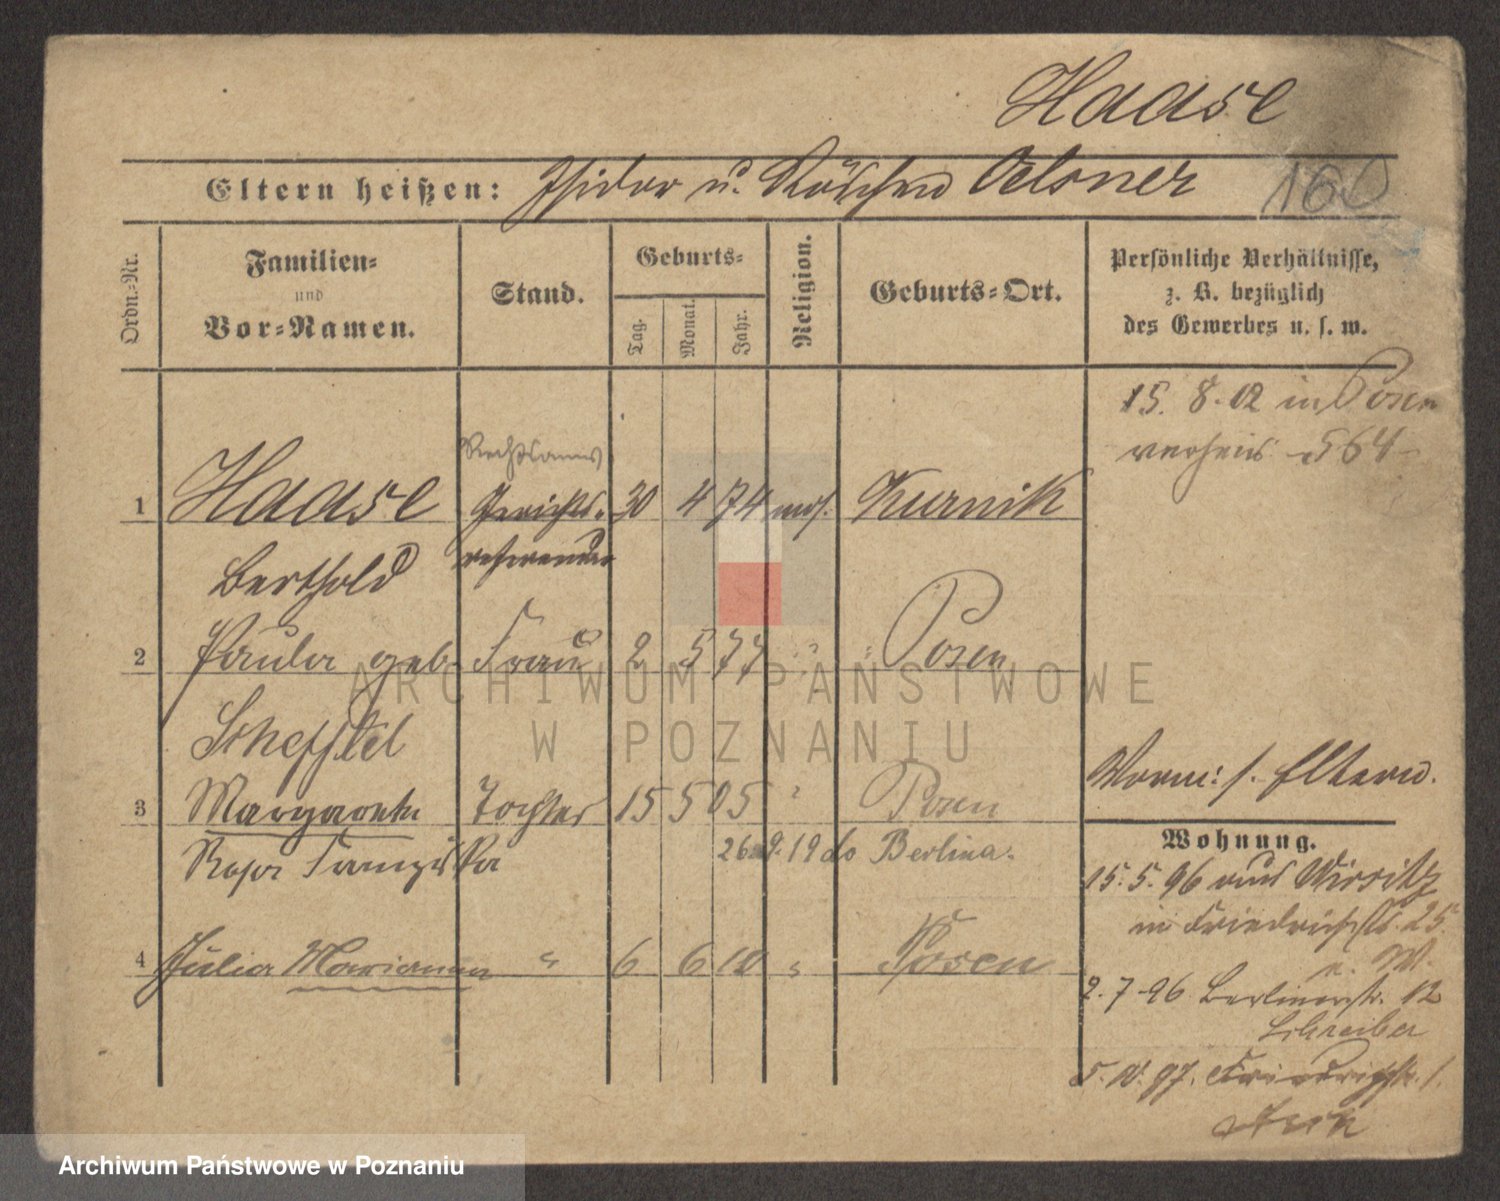 Haase
Eltern heißen: Isidor u. Röschen Oelsner
160
Ordn.-Nr.
Familien-
und
Vor-Namen.
Stand.
Geburts-
Tag.
Monat.
Jahr.
Religion.
Geburts-Ort.
Persönliche Verhältnisse,
z. B. bezüglich
des Gewerbes u. s. w.
15. 8. 02 in Posen
verheir. 564
Rechtsanw
1 Haase Gerichts- 30 4 74 mos. Kurnik
Berthold referendar
2 Paula geb. Frau 2 5 77 " Posen
Scheffel
Worm: s. Eltern.
3 Margarete Tochter 15 5 05 " Posen
Rosa Franziska 26. 9. 19 do Berlin
Wohnung.
15. 5. 96 aus Wirsitz
in Friedrichstr. 25
4 Julia Marianna " 6 6 10 " Posen
2. 7. 96 Berlinerstr. 12
Schreiber
5. 10. 97. Friedrichstr. 1.
ARCHIWUM PAŃSTWOWE
W POZNANIU
Archiwum Państwowe w Poznaniu